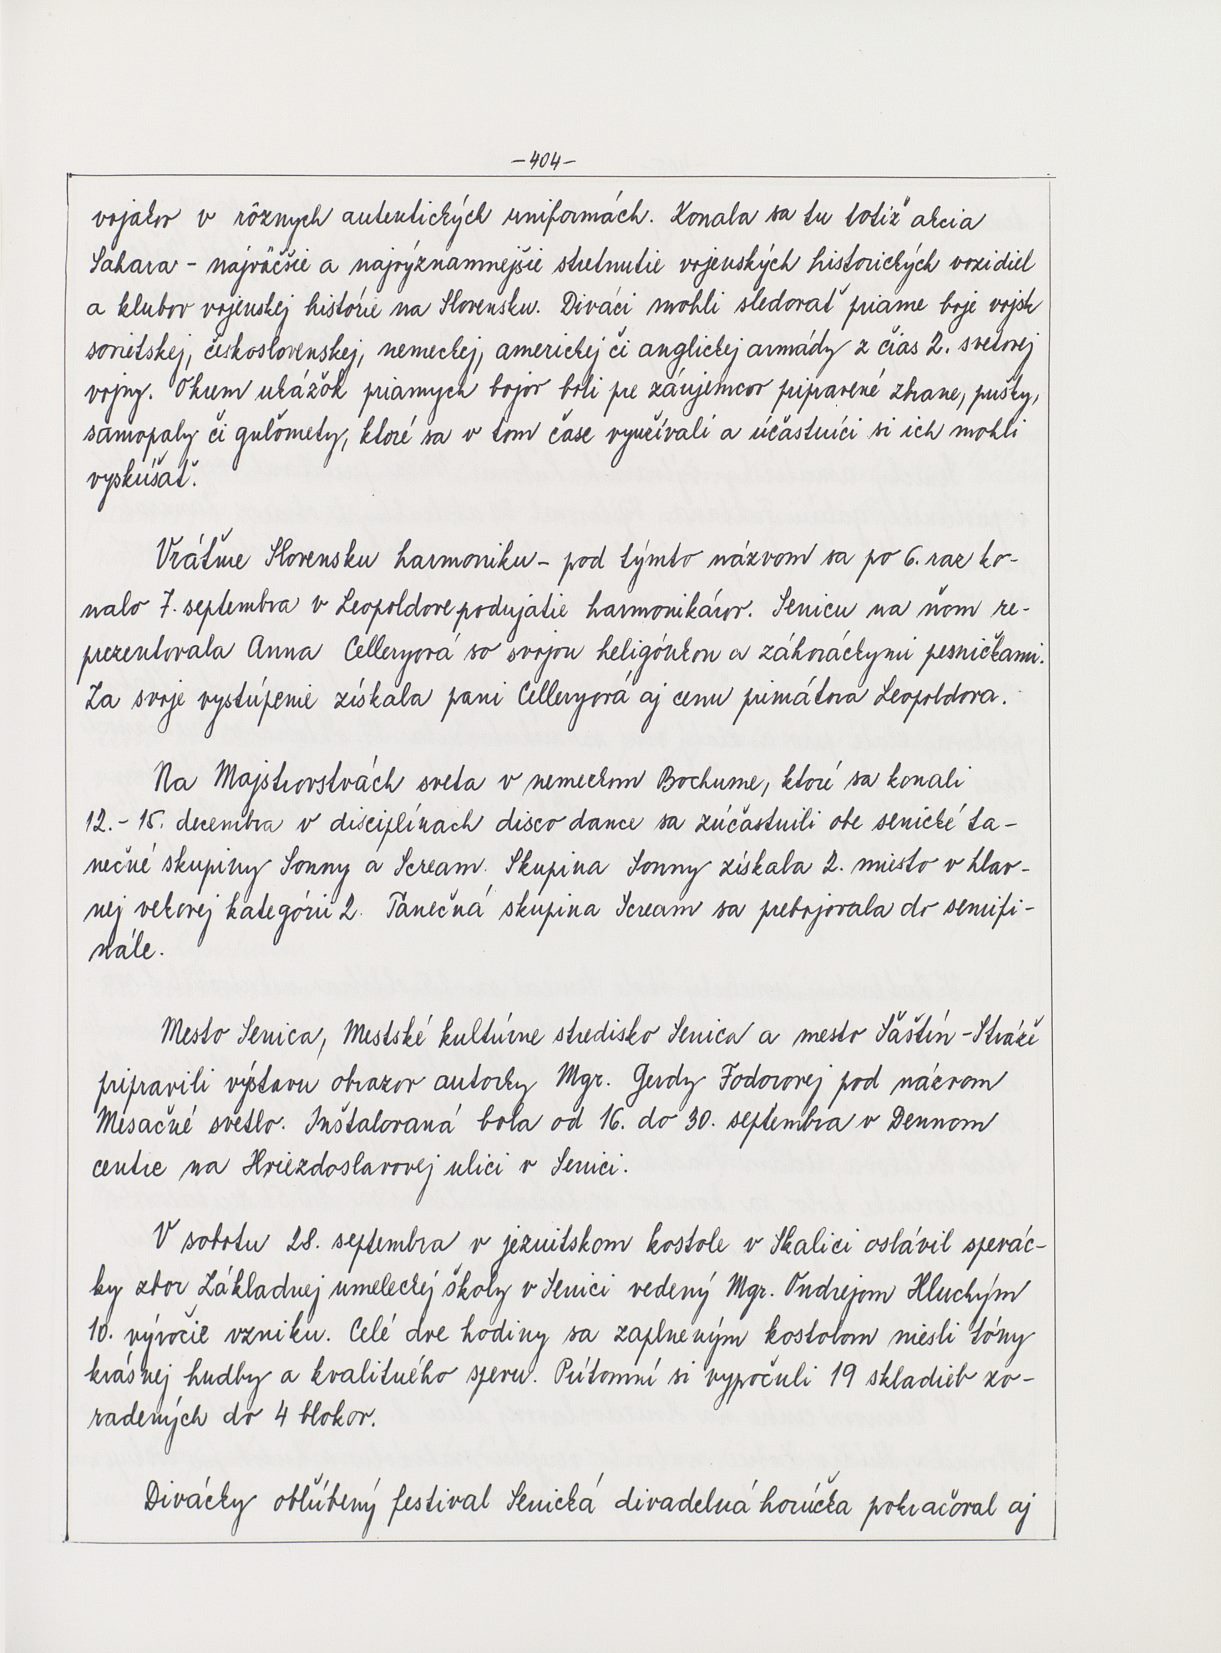 -404-
vojakov v rôznych autentických uniformách. Konala sa tu totiž akcia
Sahara - najväčšie a najvýznamnejšie stretnutie vojenských historických vozidiel
a klubov vojenskej histórie na Slovensku. Diváci mohli sledovať priame boje vojsk
sovietskej, československej, nemeckej, americkej či anglickej armády z čias 2. svetovej
vojny. Okrem ukážok priamych bojov boli pre záujemcov pripravené zbrane, pušky,
samopaly či guľomety, ktoré sa v tom čase využívali a účastníci si ich mohli
vyskúšať.
Vráťme Slovensku harmoniku - pod týmto názvom sa po 6. raz ko-
nalo 7. septembra v Leopoldove podujatie harmonikárov. Senicu na ňom re-
prezentovala Anna Celleryová so svojou heligónkou a záhoráckymi pesničkami.
Za svoje vystúpenie získala pani Celleryová aj cenu primátora Leopoldova.
Na Majstrovstvách sveta v nemeckom Bochume, ktoré sa konali
12. - 15. decembra v disciplínach disco dance sa zúčastnili obe senické ta-
nečné skupiny Sonny a Scream. Skupina Sonny získala 2. miesto v hlav-
nej vekovej kategórii 2. Tanečná skupina Scream sa prebojovala do semifi-
nále.
Mesto Senica, Mestské kultúrne stredisko Senica a mesto Šaštín - Stráže
pripravili výstavu obrazov autorky Mgr. Gerdy Fodorovej pod názvom
Mesačné svetlo. Inštalovaná bola od 16. do 30. septembra v Dennom
centre na Hviezdoslavovej ulici v Senici.
V sobotu 28. septembra v jezuitskom kostole v Skalici oslávil spevác-
ky zbor Základnej umeleckej školy v Senici vedený Mgr. Ondrejom Hluchým
10. výročie vzniku. Celé dve hodiny sa zaplneným kostolom niesli tóny
krásnej hudby a kvalitného spevu. Prítomní si vypočuli 19 skladieb zo-
radených do 4 blokov.
Divácky obľúbený festival Senická divadelná horúčka pokračoval aj